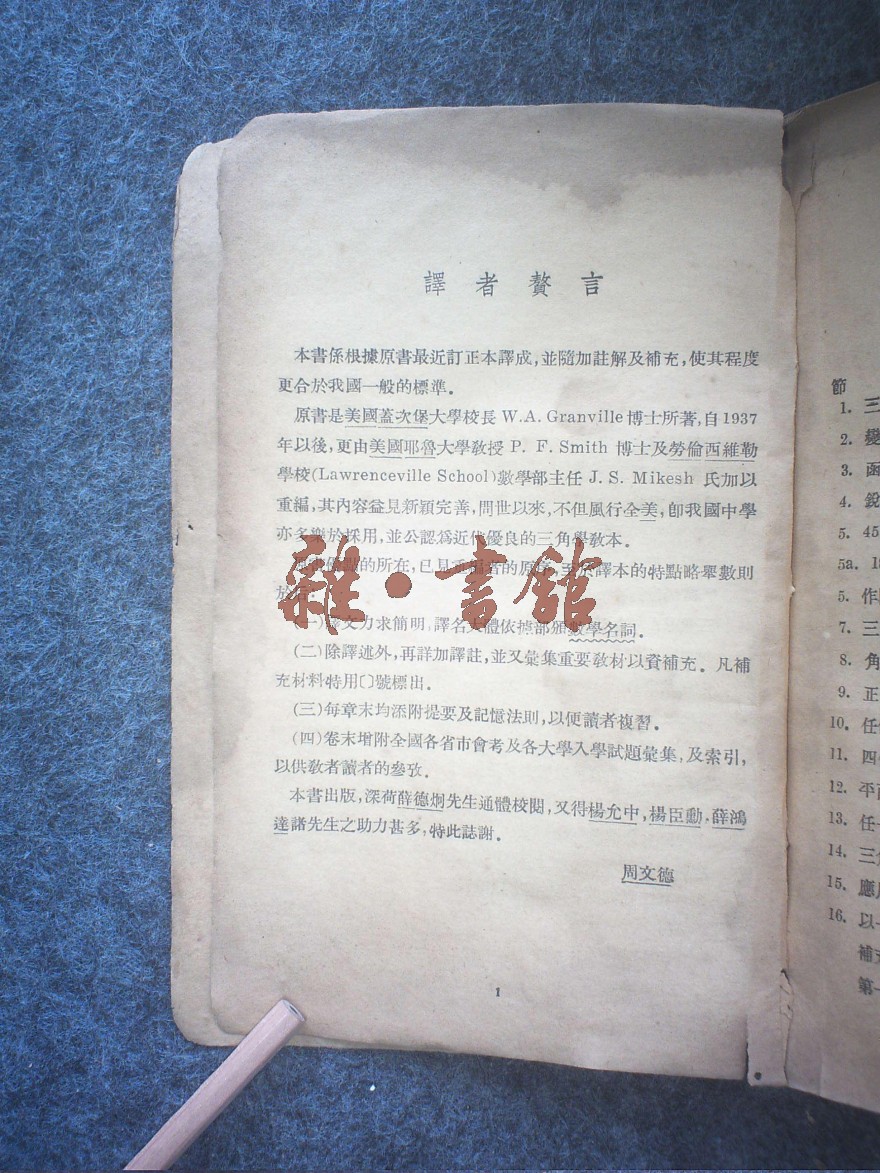 譯者贅言
本書係根據原書最近訂正本譯成,並隨加註解及補充,使其程度
更合於我國一般的標準。
原書是美國蓋次堡大學校長 W.A. Granville 博士所著,自1937
年以後,更由美國耶魯大學敎授 P. F. Smith 博士及勞倫西維勒
學校(Lawrenceville School)數學部主任 J. S. Mikesh 氏加以
重編,其內容益見新穎完善,問世以來,不但風行全美,卽我國中學
亦多樂於採用,並公認爲近代優良的三角學敎本。
的所在,已見 者的原序,至於譯本的特點略舉數則
於
(一)譯文力求簡明,譯名大體依據部頒數學名詞。
(二)除譯述外,再詳加譯註,並又彙集重要敎材以資補充。凡補
充材料特用〔〕號標出。
(三)每章末均添附提要及記憶法則,以便讀者複習。
(四)卷末增附全國各省市會考及各大學入學試題彙集,及索引,
以供敎者讀者的參攷。
本書出版,深荷薛德炯先生通體校閱,又得楊允中,楊臣勳,薛鴻
達諸先生之助力甚多,特此誌謝。
周文德
1
雜·書館
節
1. 三
2. 變
3. 函
4. 銳
5. 45
5a. 18
5. 作
7. 三
8. 角
9. 正
10. 任
11. 四
12. 平
13. 任一
14. 三角
15. 應
16. 以
補充
第一